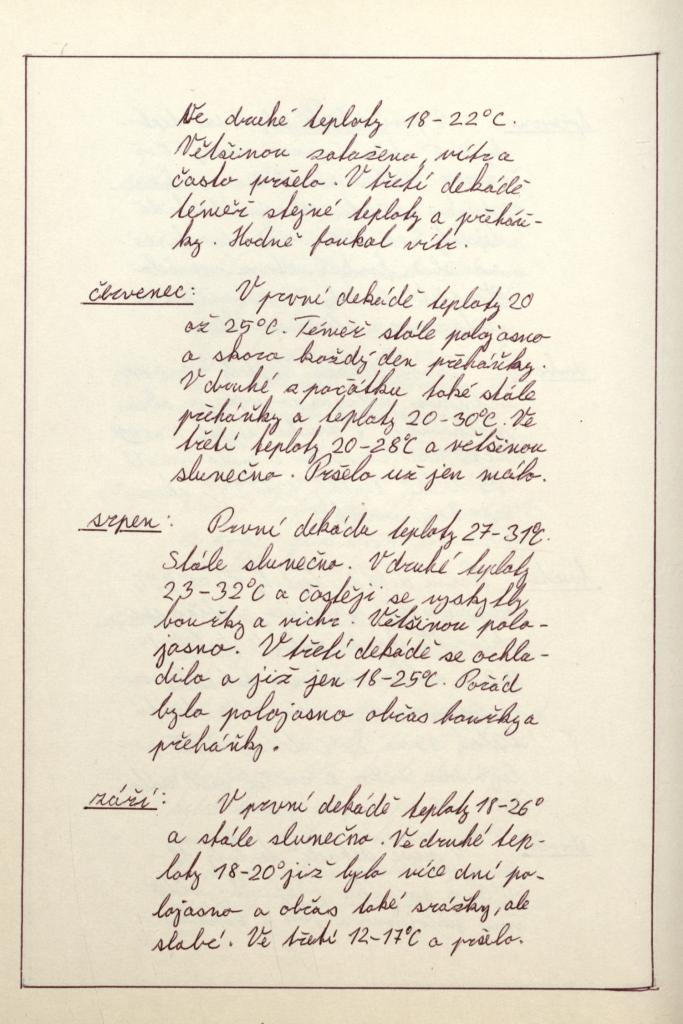 Ve druhé teploty 18-22°C.
Většinou zataženo, vítr a
často pršelo. V třetí dekádě
téměř stejné teploty a přeháň-
ky. Hodně foukal vítr.
červenec: V první dekádě teploty 20
až 25°C. Téměř stále polojasno
a skoro každý den přeháňky.
V druhé z počátku také stále
přeháňky a teploty 20-30°C. Ve
třetí teploty 20-28°C a většinou
slunečno. Pršelo už jen málo.
srpen: První dekáda teploty 27-31°C.
Stále slunečno. V druhé teploty
23-32°C a častěji se vyskytly
bouřky a vichr. Většinou polo-
jasno. V třetí dekádě se ochla-
dilo a již jen 18-25°C. Pořád
bylo polojasno občas bouřky a
přeháňky.
září: V první dekádě teploty 18-26°
a stále slunečno. Ve druhé tep-
loty 18-20° již bylo více dní po-
lojasno a občas také srážky, ale
slabé. Ve třetí 12-17°C a pršelo.